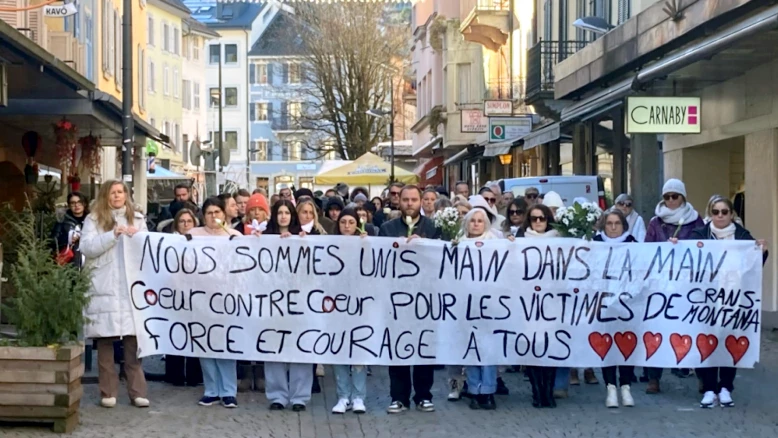 KAVO
CARNABY
SIMPLON
NOUS SOMMES UNIS MAIN DANS LA MAIN
COEUR CONTRE COEUR POUR LES VICTIMES DE CRANS-
MONTANA
FORCE ET COURAGE À TOUS